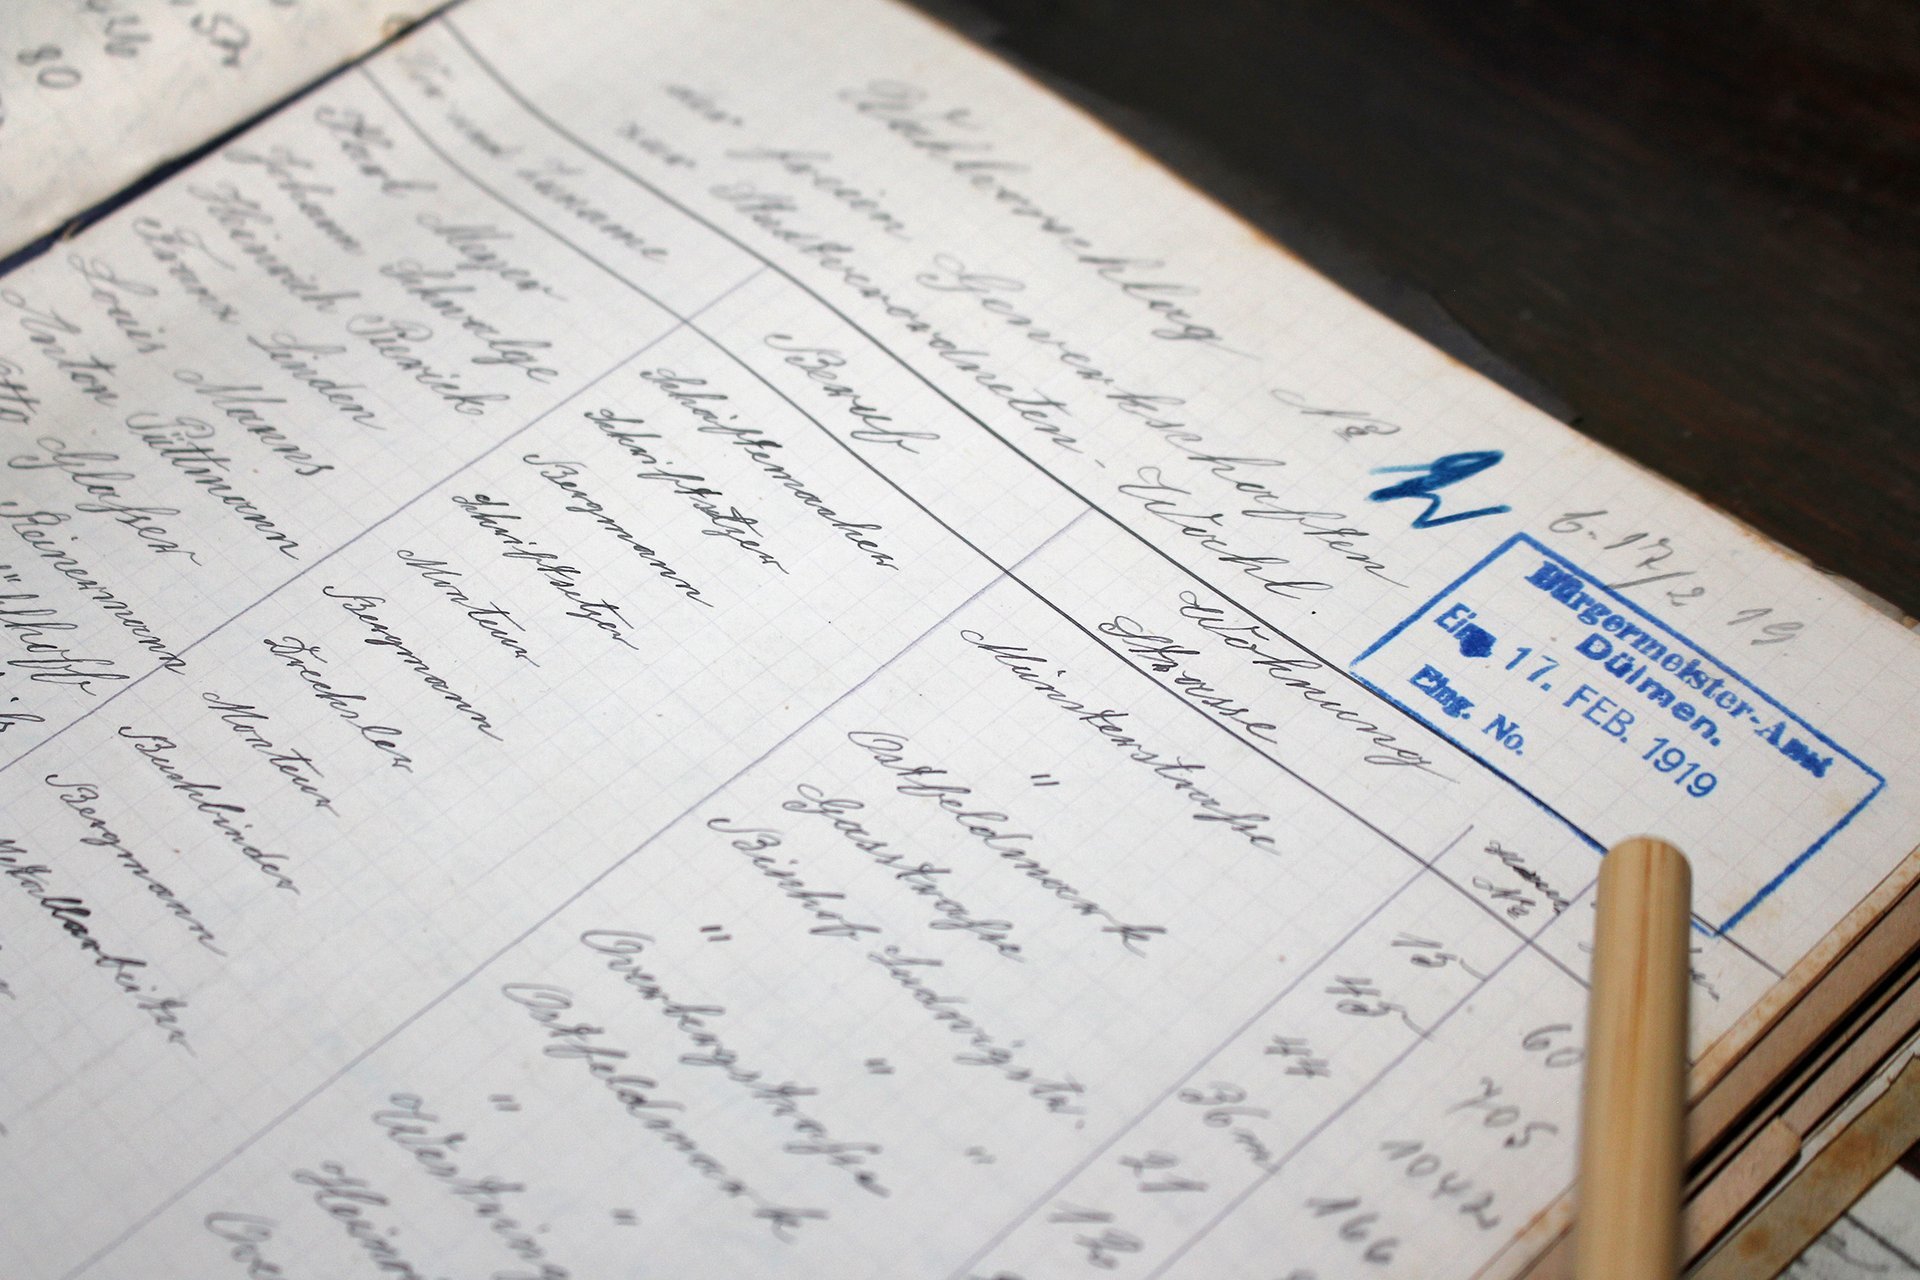 Wahlvorschlag №
der freien Gewerkschaften
zur Stadtverordneten-Wahl.
b. 17/2 19
Bürgermeister-Amt
Dülmen.
Eing. 17. FEB. 1919
Eing. No.
Vor und Zuname Beruf Wohnung
Strasse Haus №
Karl Meyer Schäftemacher Münsterstraße 15
Johann Schwalge Schriftsetzer " 45
Heinrich Pierick Bergmann Ostfeldmark 44
Franz Linden Schriftsetzer Gasstraße 36
Louis Manns Monteur Bischof Ludwigstr. 21
Anton Püttmann Bergmann " " 12
Otto Glaßer Drechsler Overbergstraße
Reinermann Monteur Ostfeldmark
Buchbinder
Bergmann
Metallarbeiter
60
705
1042
166
80